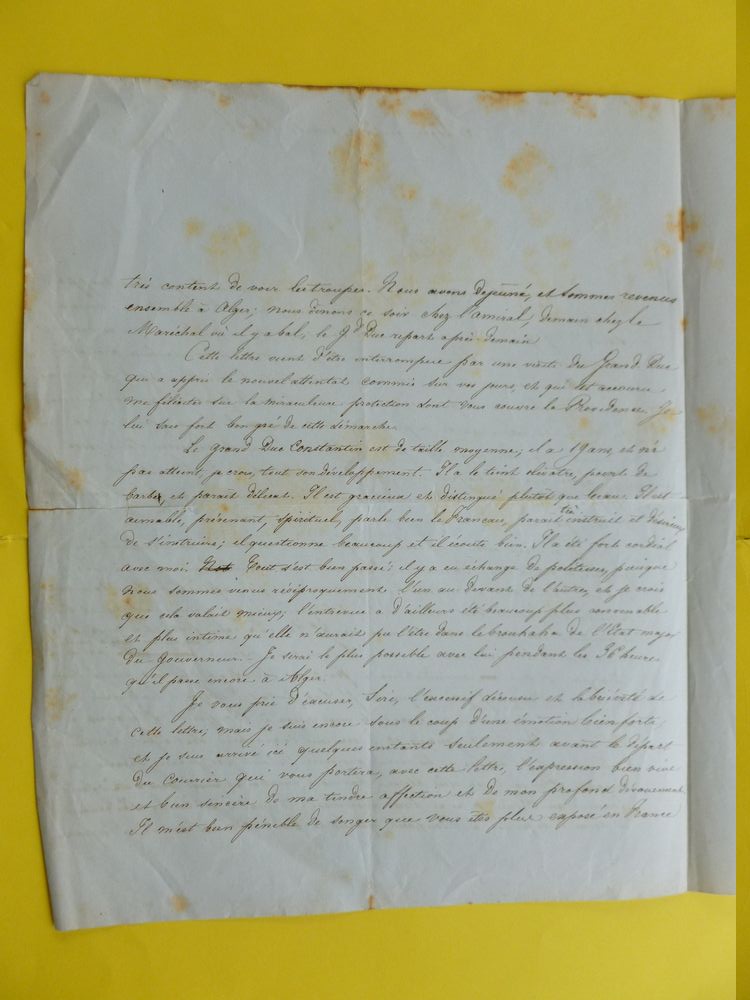 très contents de voir les troupes. Nous avons dejeûné, et sommes revenus
ensemble à Alger; nous dinons ce soir chez l'amiral, demain chez le
Maréchal où il y a bal, le Gd Duc repart après demain
Cette lettre vient d'être interrompue par une visite du Grand Duc
qui a appris le nouvel attentat commis sur vos jours, et qui est accouru
me féliciter sur la miraculeuse protection dont vous couvre la Providence. Je
lui sais fort bon gré de cette démarche.
Le grand Duc Constantin est de taille moyenne; il a 19 ans, et n'a
pas atteint, je crois, tout son développement. Il a le teint olivatre, point de
barbe, et parait délicat. Il est gracieux et distingué plutot que beau. Il est
aimable, prévenant, spirituel, parle bien le Francais, parait instruit et désireux
de s'instruire; il questionne beaucoup et il écoute bien. Il a été fort cordial
avec moi. Tout s'est bien passé: il y a eu échange de politesses, puisque
nous sommes venus réciproquement l'un au devant de l'autre, et je crois
que cela valait mieux; l'entrevue a d'ailleurs été beaucoup plus convenable
et plus intime qu'elle n'aurait pu l'être dans le brouhaha de l'Etat major
du gouverneur. Je serai le plus possible avec lui pendant les 36 heures
qu'il passe encore à Alger.
Je vous prie d'excuser, Sire, l'excessif décousu et la brièveté de
cette lettre, mais je suis encore sous le coup d'une émotion bien forte,
et je suis arrivé ici quelques instants seulement avant le départ
du courrier qui vous portera, avec cette lettre, l'expression bien vive
et bien sincère de ma tendre affection et de mon profond dévouement
Il m'est bien pénible de songer que vous êtes plus exposé en France